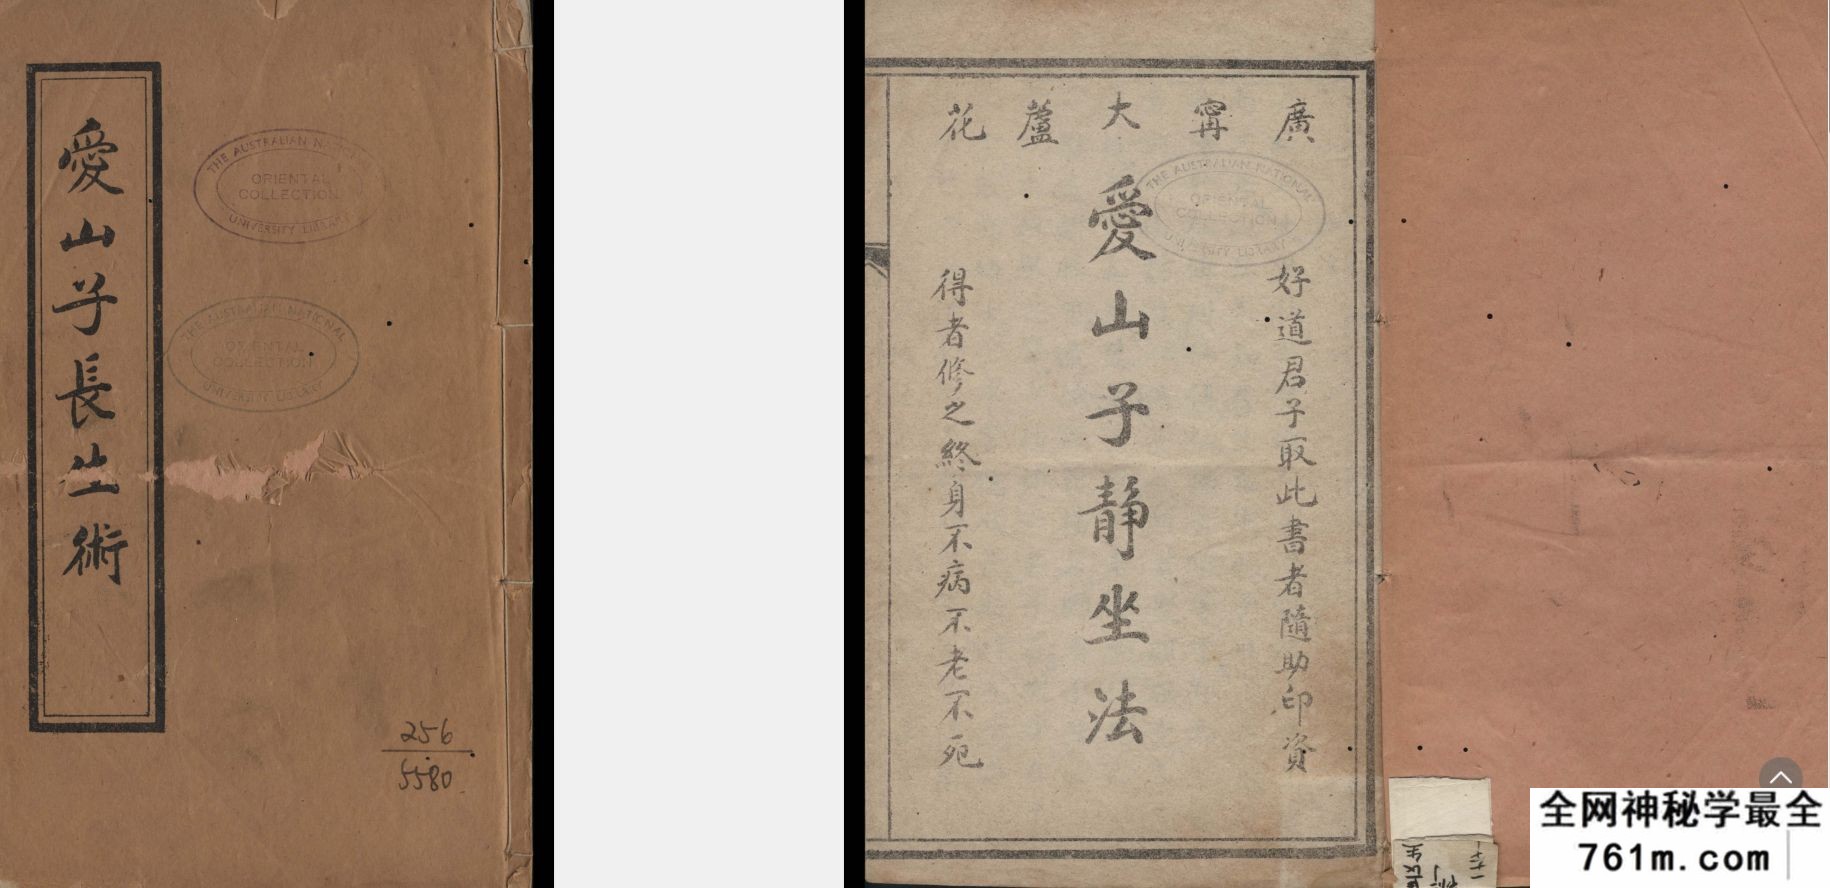 愛山子長生術
THE AUSTRALIAN NATIONAL
ORIENTAL
COLLECTION
UNIVERSITY LIBRARY
THE AUSTRALIAN NATIONAL
ORIENTAL
COLLECTION
UNIVERSITY LIBRARY
256
5580
廣甯大蘆花
THE AUSTRALIAN NATIONAL
ORIENTAL
COLLECTION
UNIVERSITY LIBRARY
好道君子取此書者隨助印資
愛山子靜坐法
得者修之終身不病不老不死
全网神秘学最全
761m.com